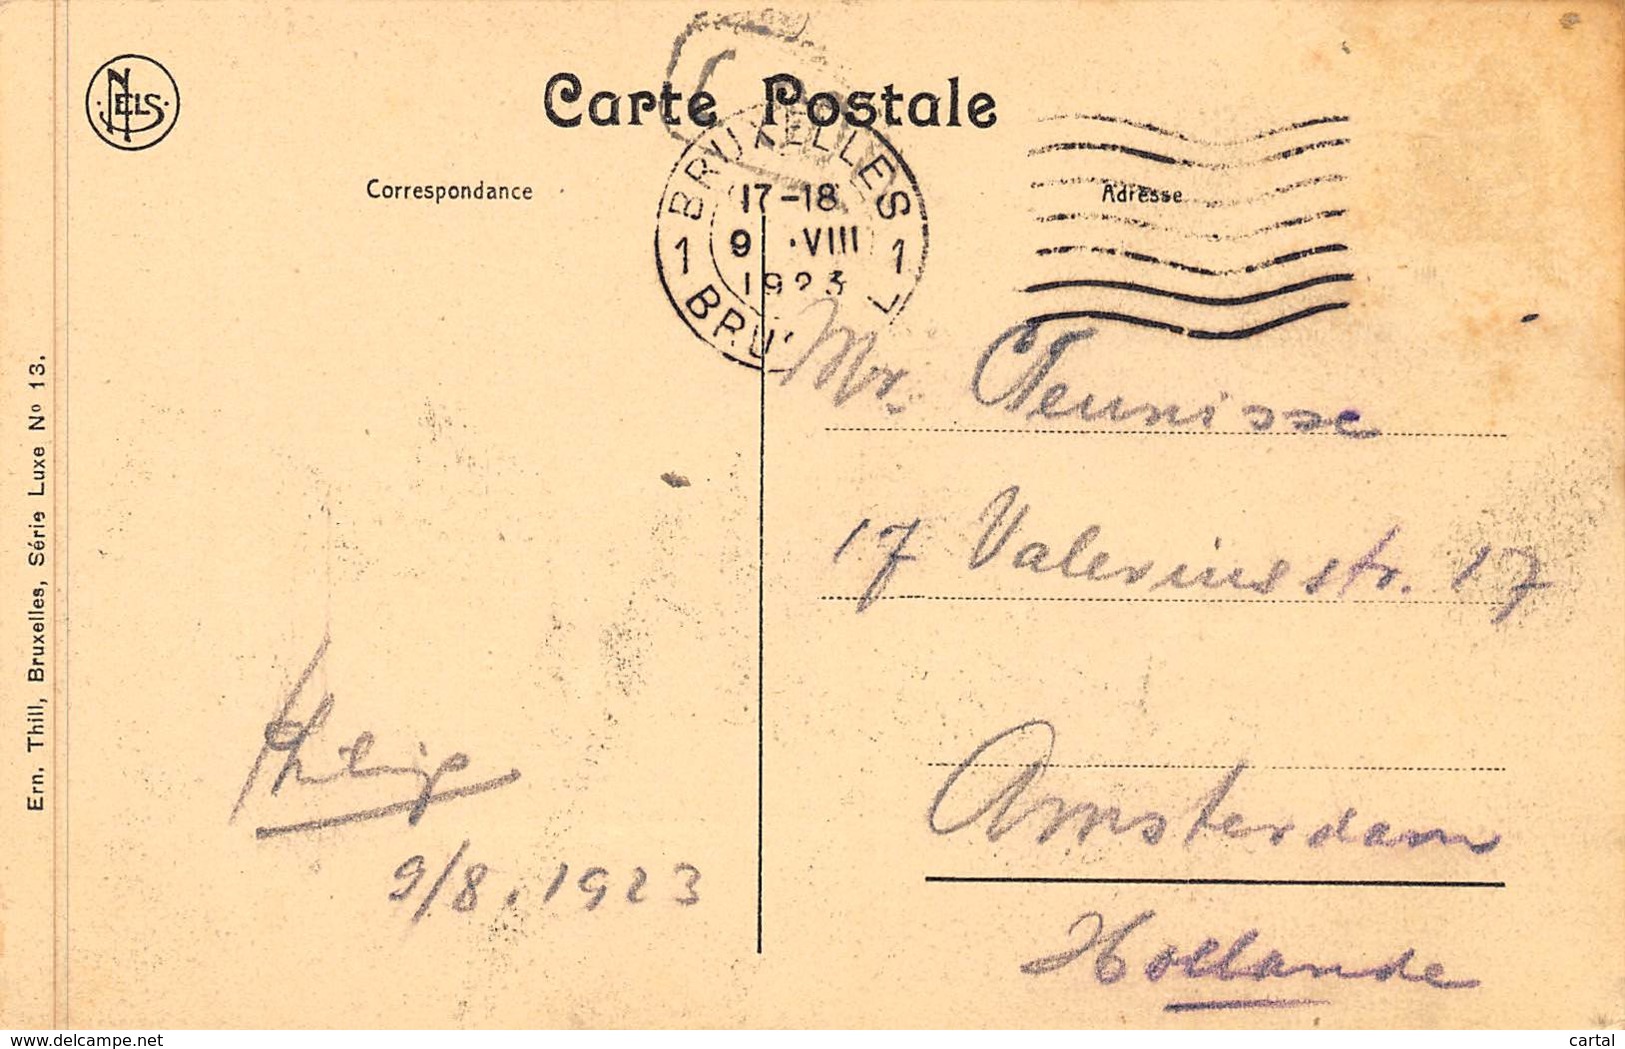 NELS
Carte Postale
Correspondance
Adresse
BRUXELLES
17-18
1 9 ·VIII 1
1923
BRU
Mr. Teunisse
17 Valeriusstr. 17
Amsterdam
Hollande
Philip
9/8. 1923
Ern. Thill, Bruxelles, Série Luxe Nº 13.
www.delcampe.net
cartal